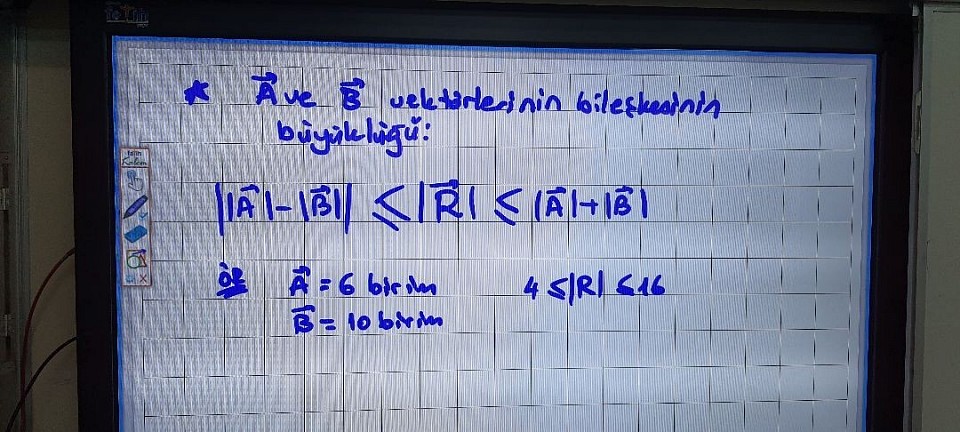 * A⃗ ve B⃗ vektörlerinin bileşkesinin
büyüklüğü:
||A⃗|-|B⃗|| ≤ |R⃗| ≤ |A⃗|+|B⃗|
ör A⃗ = 6 birim 4 ≤ |R| ≤ 16
B⃗ = 10 birim